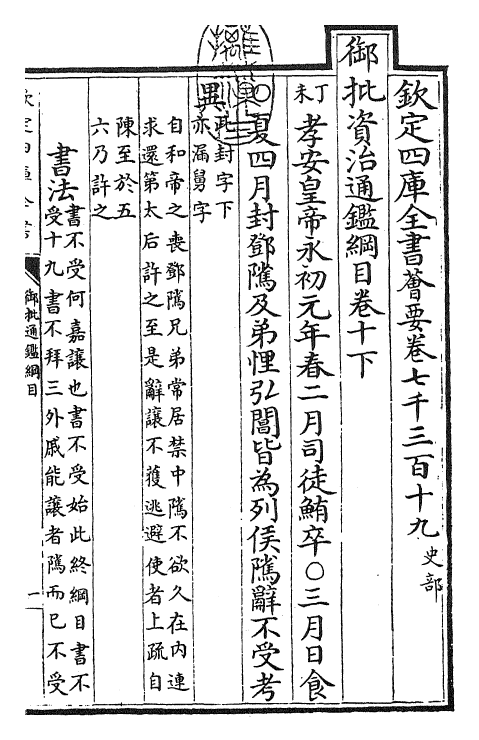 欽定四庫全書薈要卷七千三百十九 史部
御批資治通鑑綱目卷十下
丁未 孝安皇帝永初元年春二月司徒鮪卒○三月日食
○夏四月封鄧隲及弟悝弘閶皆為列侯隲辭不受考
異 封字下
亦漏舅字
自和帝之喪鄧隲兄弟常居禁中隲不欲久在内連
求還第太后許之至是辭讓不獲逃避使者上疏自
陳至於五
六乃許之
書法 書不受何嘉讓也書不受始此終綱目書不
受十九書不拜三外戚能讓者隲而已不受
欽定四庫全書
御批通鑑綱目
一